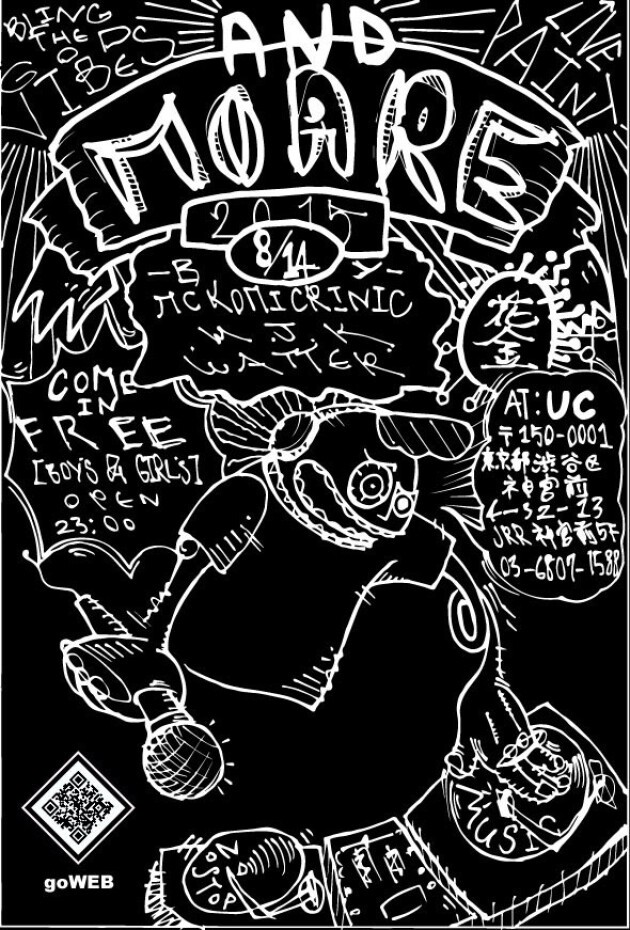 BLING
THE
OPS
VIBES
AND
MOARE
LIVE
PAINT
2015
8/14
-B Y-
MC KOMICRINIC
W J K
WATTER
花
金
COME
IN
FREE
[BOYS & GIRLS]
OPEN
23:00
AT:UC
〒150-0001
東京都渋谷区
神宮前
6-32-13
JRR神宮前5F
03-6807-1588
MUSIC
NON
STOP
goWEB